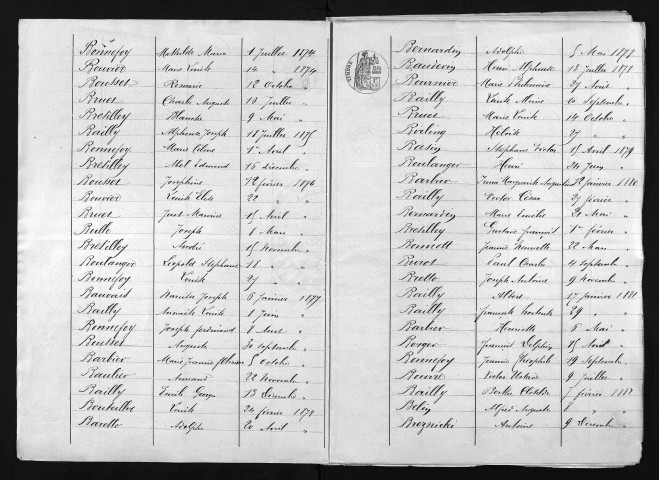 Bonnefoy Mathilde Maria 1 Juillet 1874
Bouvier Marie Louise 14 " 1874
Bousset Romaric 12 Octobre "
Bruet Charles Auguste 18 Juillet "
Bretilley Blanche 9 Mai "
Bailly Alphonse Joseph 18 Juillet 1875
Bonnefoy Marie Céline 1er Avril "
Bretilley Abel Edmond 16 Décembre "
Bousset Joséphine 12 février 1876
Bouvier Louise Elise 22 "
Bruet Just Maurice 15 Avril "
Balle Joseph 8 Mars "
Bretilley André 15 Novembre "
Boulanger Léopold Stéphane 18 " "
Bonnefoy Louise 27 "
Bauvard Stanislas Joseph 6 Janvier 1877
Bailly Louise 1 Juin "
Bonnefoy Joseph ferdinand 8 Aout "
Bousset Auguste 30 septembre "
Barbier Marie Jeanne 5 Octobre "
Baulier Armand 22 Novembre "
Bailly Emile Georges 13 Décembre "
Bouteiller Louise 24 février 1878
Baretto Adolphe 20 Avril "
Bernardin Adolphe 5 Mai 1878
Bauderin Henri Alphonse 13 Juillet 1878
Bournier Marie 27 Aout "
Bailly Louise Marie 10 Septembre "
Bruet Marie Louise 14 Octobre "
Héloïse 27 "
Basin Stéphane Victor 15 Avril 1879
Boulanger Henri 24 Juin "
Barbier Irma Marguerite Augustine 12 février 1880
Bailly Victor César 27 février "
Bernardin Marie 21 Mai "
Bretilley Gustave 1er février "
Jeanne 22 Mars "
Paul Charles 4 septembre "
Joseph Antoine 9 Novembre "
Bailly Albert 17 Janvier 1881
Bailly 29 " "
Barbier Henriette 6 Mai "
Berger Jeanne Delphine 15 Avril "
Bonnefoy Jeanne Théophile 19 Septembre "
9 Juillet "
Bailly Berthe Clotilde 7 février 1882
Belin Alfred Auguste 8 " "
Breznicki Antoine 9 Décembre "